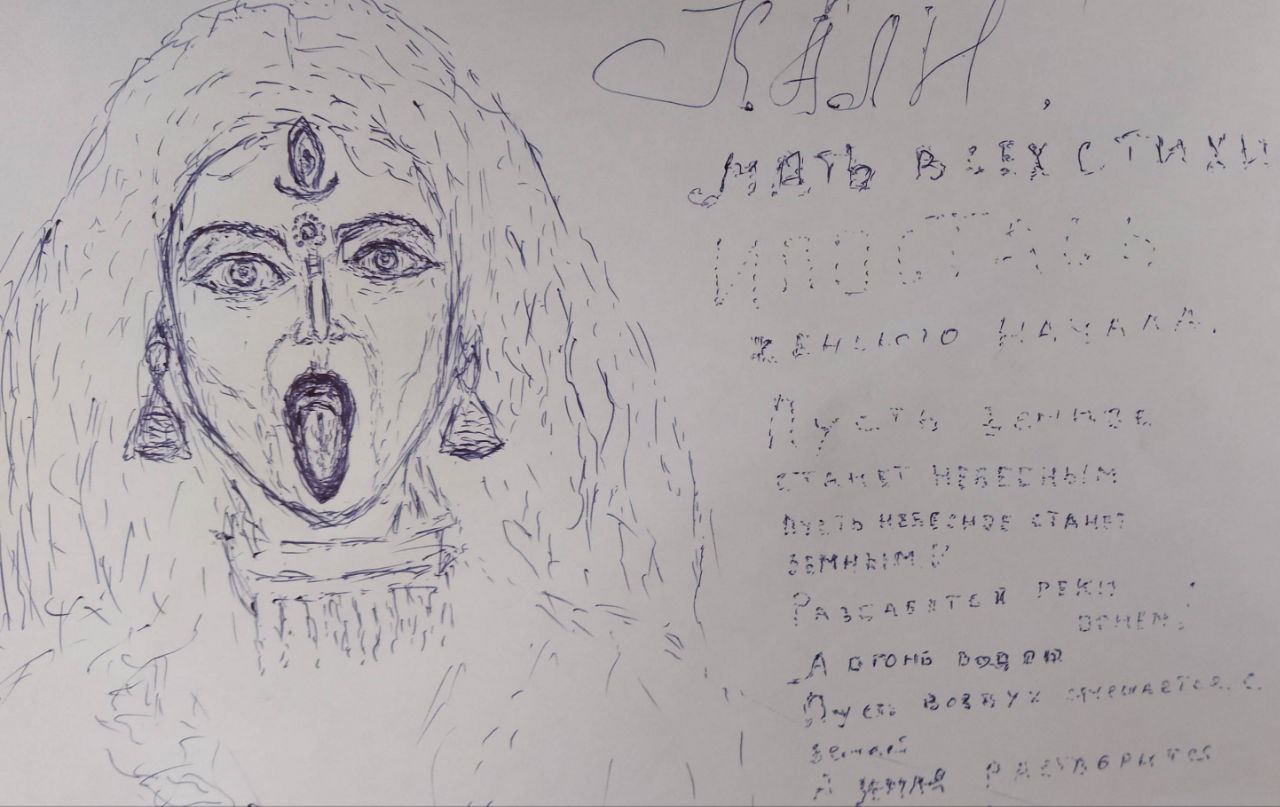 КАЛИ.
МАТЬ ВСЕХ СТИХИ
ИПОСТАСЬ
ЖЕНЫЮГО НАЧАЛА.
Пусть Земное
СТАНЕТ НЕБЕСНЫМ
ПУСТЬ НЕБЕСНОЕ СТАНЕТ
ЗЕМНЫМ.
РЕКИ
ОГНЕМ.
А ОГОНЬ ВОДОЮ
Пусть ВОЗДУХ СМЕШАЕТСЯ С
Землей
А ЗЕМЛЯ РАСТВОРИТСЯ